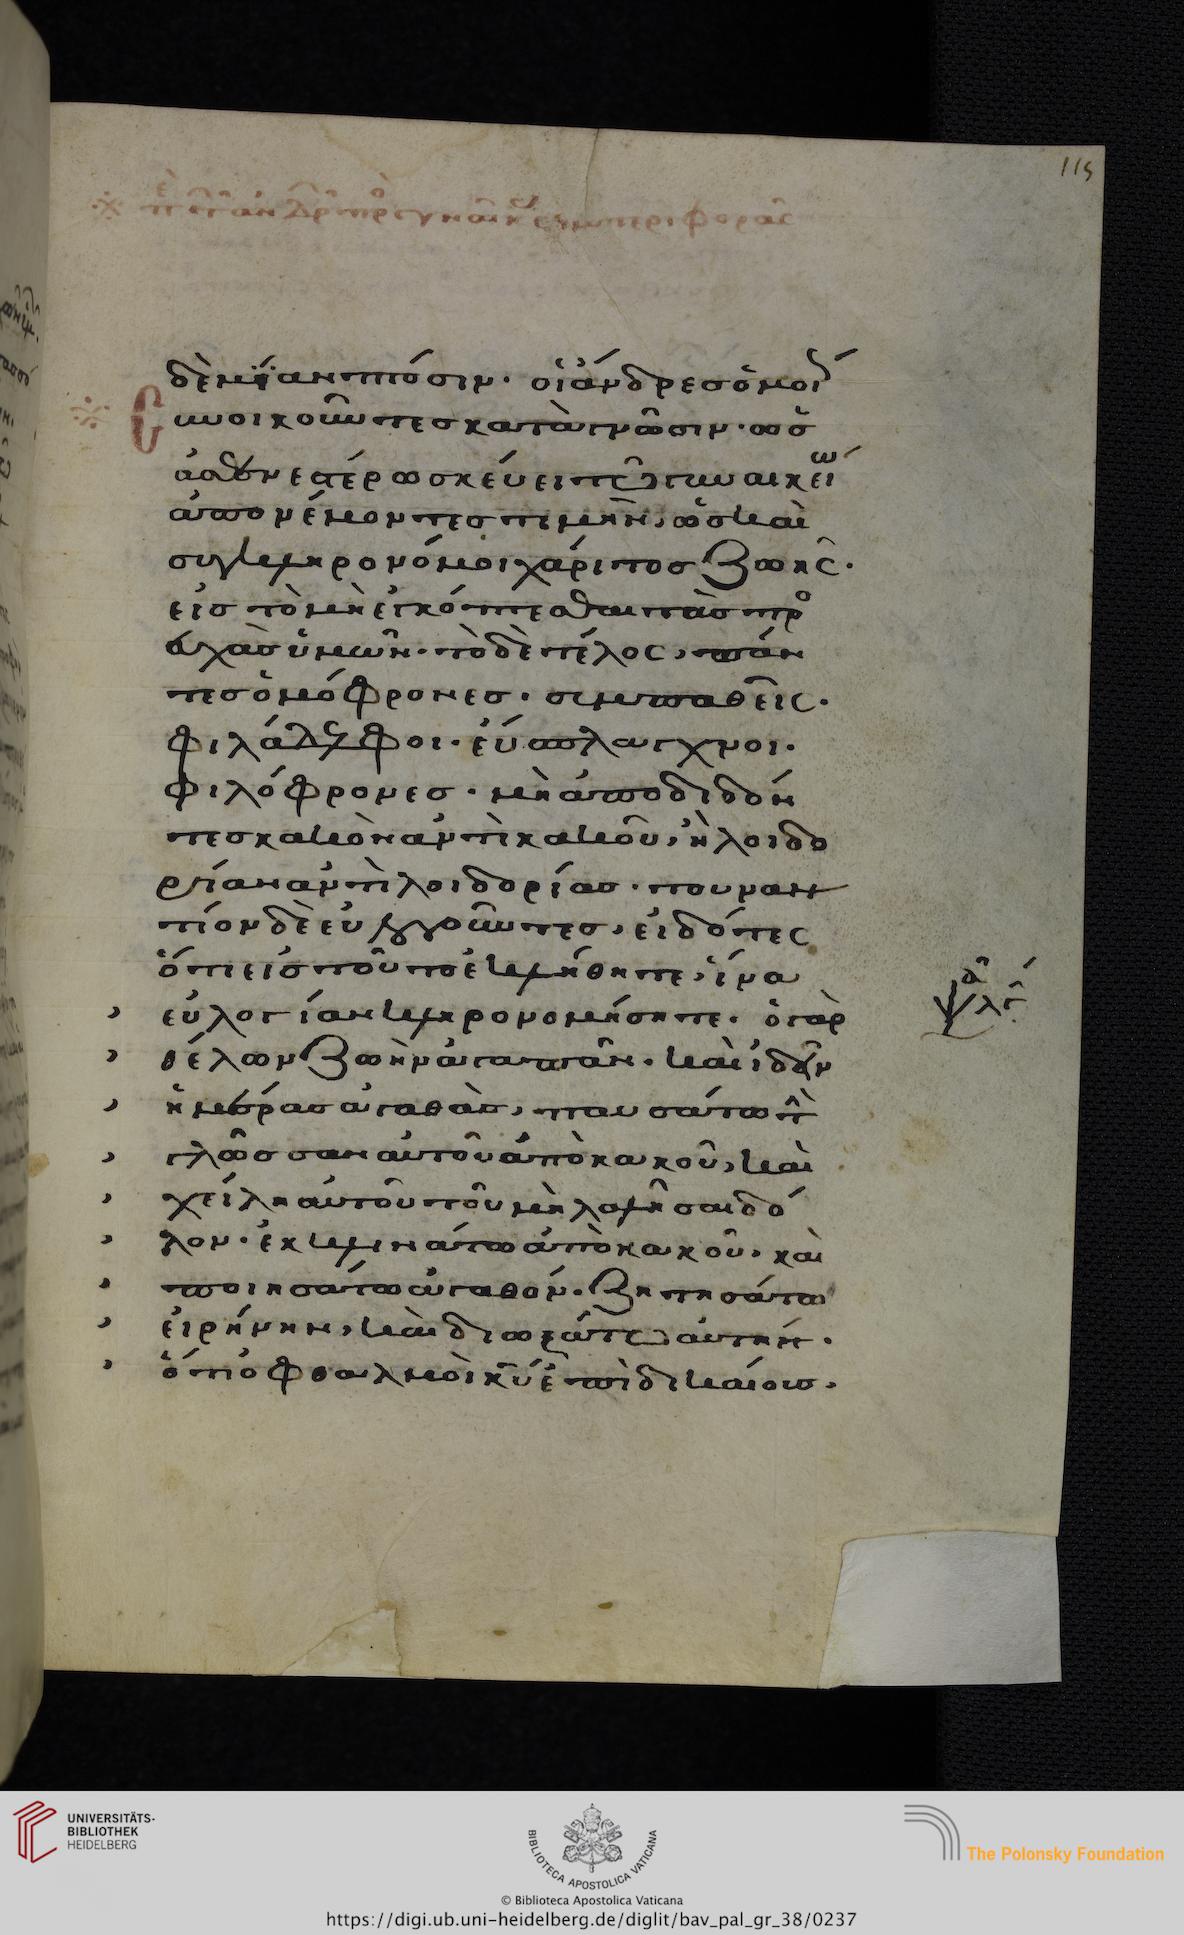 115
δὲ μίαν πτόησιν· οἱ ἄνδρες ὁμοί
συνοικοῦντες κατὰ γνῶσιν· ὡς
ἀσθενεστέρω σκεύει τῶ γυναικείω
ἀπονέμοντες τιμὴν, ὡς καὶ
συγκληρονόμοι χάριτος ζωῆς·
εἰς τὸ μὴ ἐγκόπτεσθαι τὰς προ
ευχὰς ὑμῶν· τὸ δὲ τέλος, πάν
τες ὁμόφρονες· συμπαθεῖς·
φιλάδελφοι· εὔσπλαγχνοι·
φιλόφρονες· μὴ ἀποδιδόν
τες κακὸν ἀντὶ κακοῦ, ἢ λοιδο
ρίαν ἀντὶ λοιδορίας· τουναν
τίον δὲ εὐλογοῦντες, εἰδότες
ὅτι εἰς τοῦτο ἐκλήθητε, ἵνα
εὐλογίαν κληρονομήσητε· ὁ γὰρ
θέλων ζωὴν ἀγαπᾶν· καὶ ἰδεῖν
ἡμέρας ἀγαθὰς, παυσάτω τὴ
γλῶσσαν αὐτοῦ ἀπὸ κακοῦ, καὶ
χείλη αὐτοῦ τοῦ μὴ λαλῆσαι δό
λον· ἐκκλινάτω ἀπὸ κακοῦ· καὶ
ποιησάτω ἀγαθόν· ζητησάτω
εἰρήνην, καὶ διωξάτω αὐτήν·
ὅτι ὀφθαλμοὶ κυ ἐπὶ δικαίους·
UNIVERSITÄTS-
BIBLIOTHEK
HEIDELBERG
BIBLIOTECA APOSTOLICA VATICANA
The Polonsky Foundation
© Biblioteca Apostolica Vaticana
https://digi.ub.uni-heidelberg.de/diglit/bav_pal_gr_38/0237